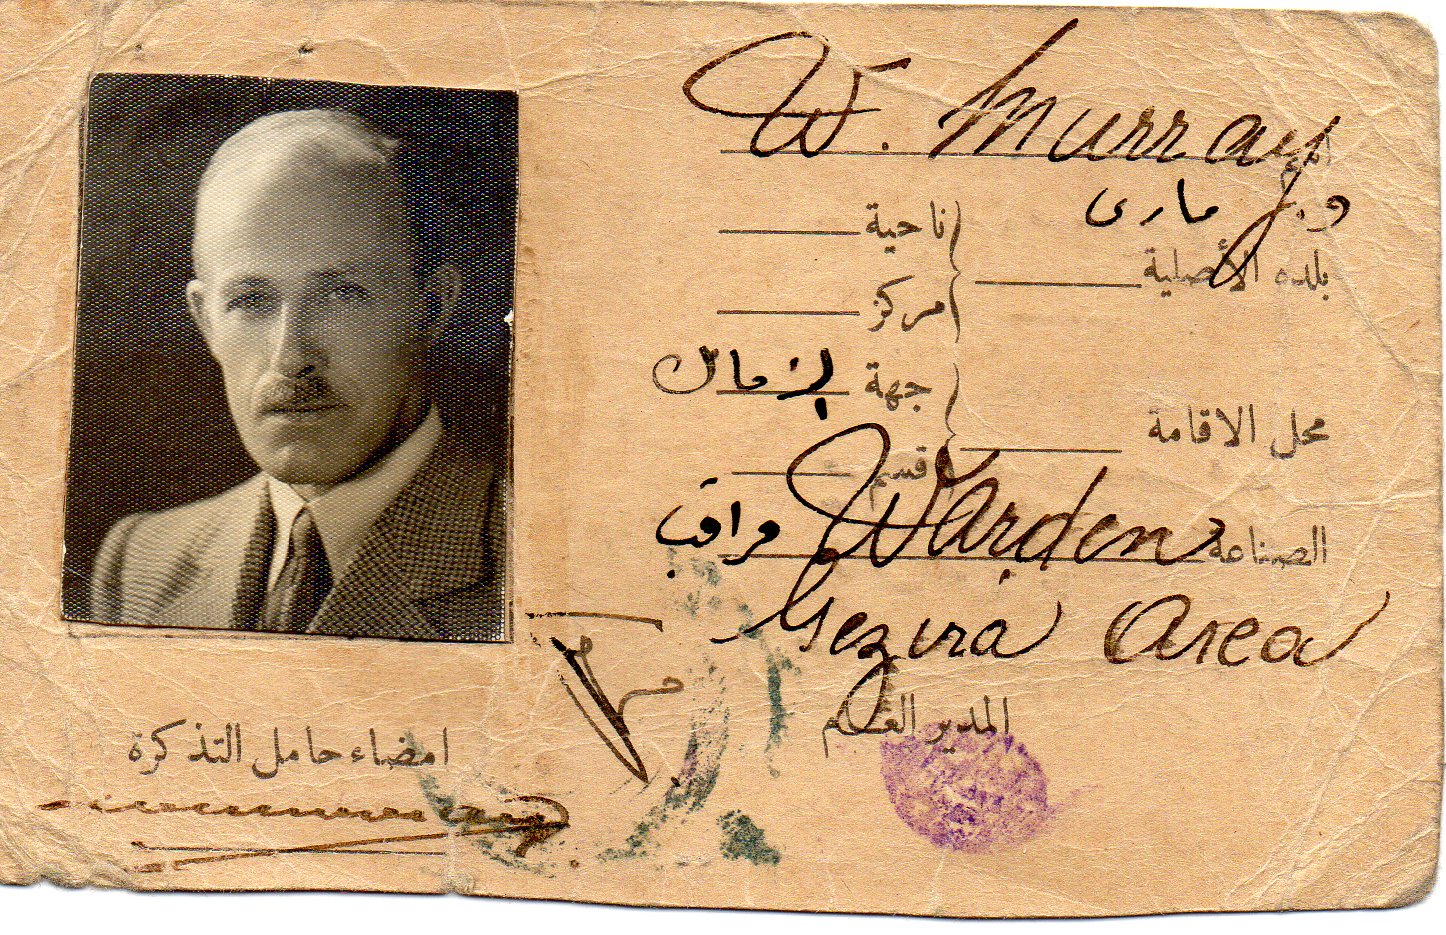 W. Murray
اسم
و. ج مارى
بلده الأصلية
ناحية
مركز
محل الاقامة
جهة الزمالك
قسم
الصناعة Warden مراقب
Gezira Area
المدير العام
امضاء حامل التذكرة